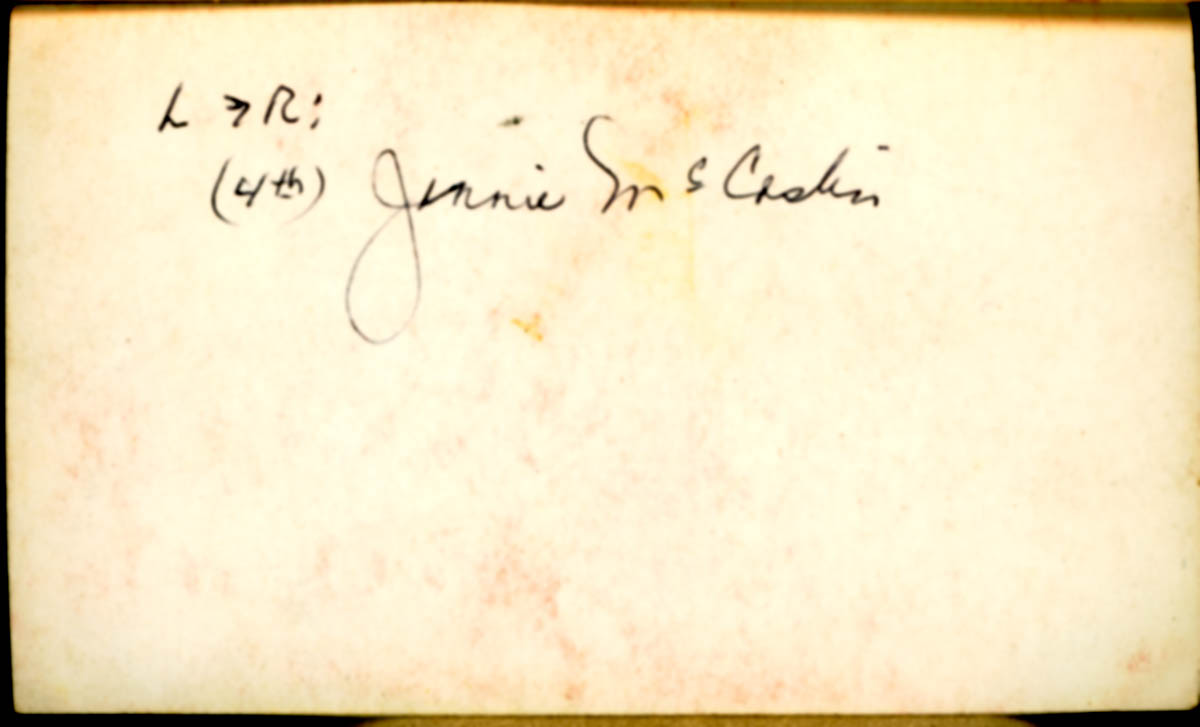 L → R:
(4th) Jennie McCaslin